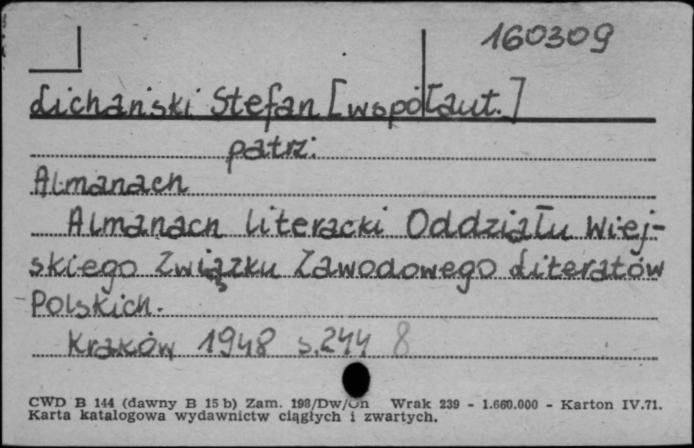 160309
Lichański Stefan [współaut.]
patrz:
Almanach
Almanach literacki Oddziału Wiej-
skiego Związku Zawodowego Literatów
Polskich.
Kraków 1948 s.244 8
CWD B 144 (dawny B 15 b) Zam. 198/Dw/On Wrak 239 - 1.660.000 - Karton IV.71.
Karta katalogowa wydawnictw ciągłych i zwartych.